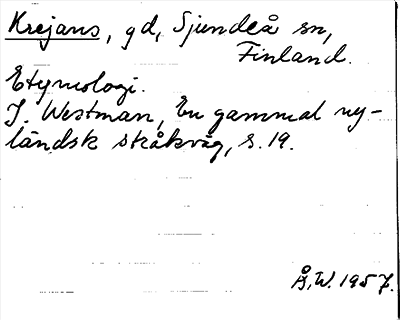 Krejans, gd, Sjundeå sn,
Finland.
Etymologi.
I. Westman, En gammal ny-
ländsk stråkväg, s. 19.
Å. W. 1957.